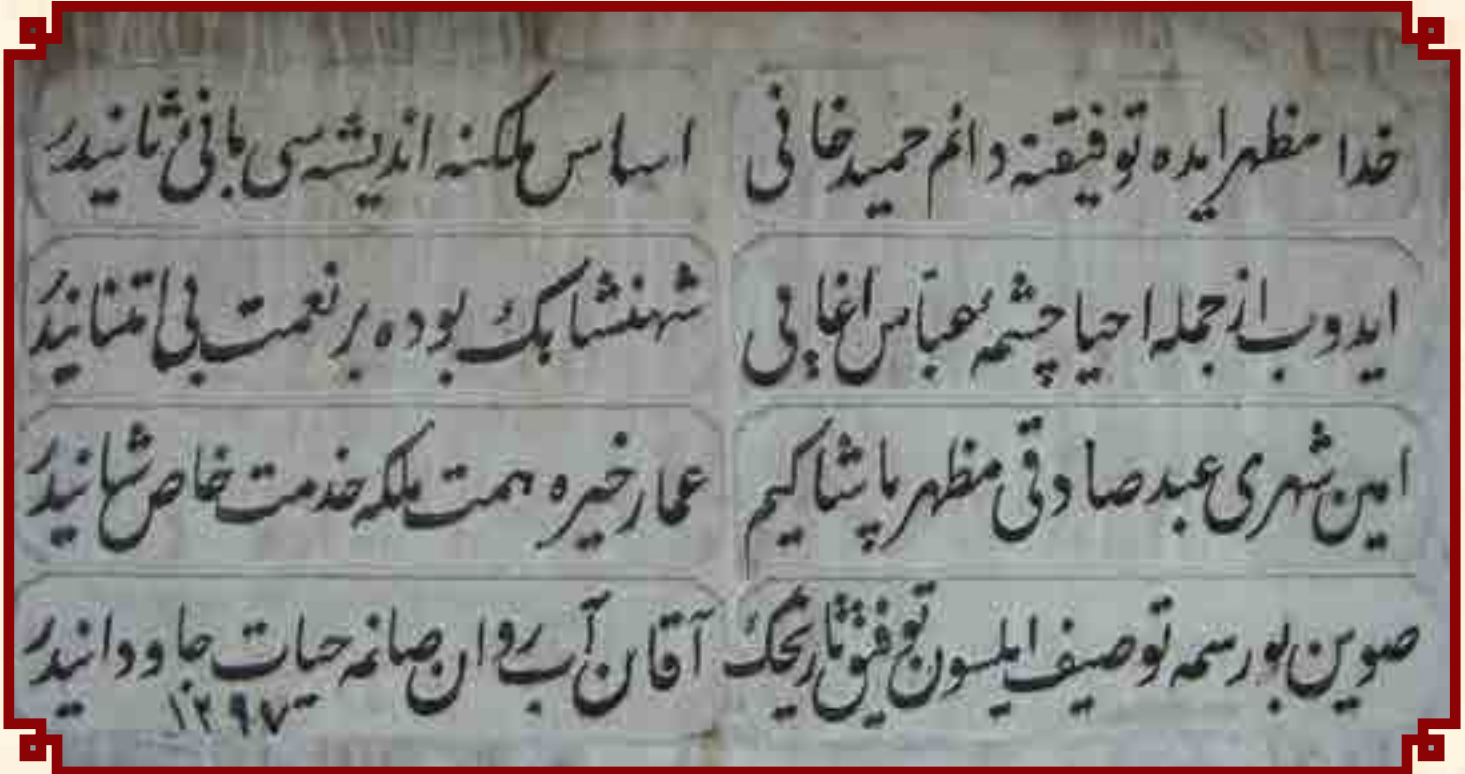 خدا مظهر ايده توفيقنه دائم حميد خانى اساس ملكنه انديشه سى بانئ ثانيدر
ايدوب از جمله احيا چشمۀ عباس اغايى شهنشاهك بوده بر نعمت بى امتنانيدر
امين شهرى عبد صادقى مظهر پاشا كيم عمار خيره همت ملكه خدمت خاص شانيدر
صوين بو رسمه توصيف ايلسون توفيق تاريخك آقان آب روان صانمه حيات جاودانيدر
١٢٩٧